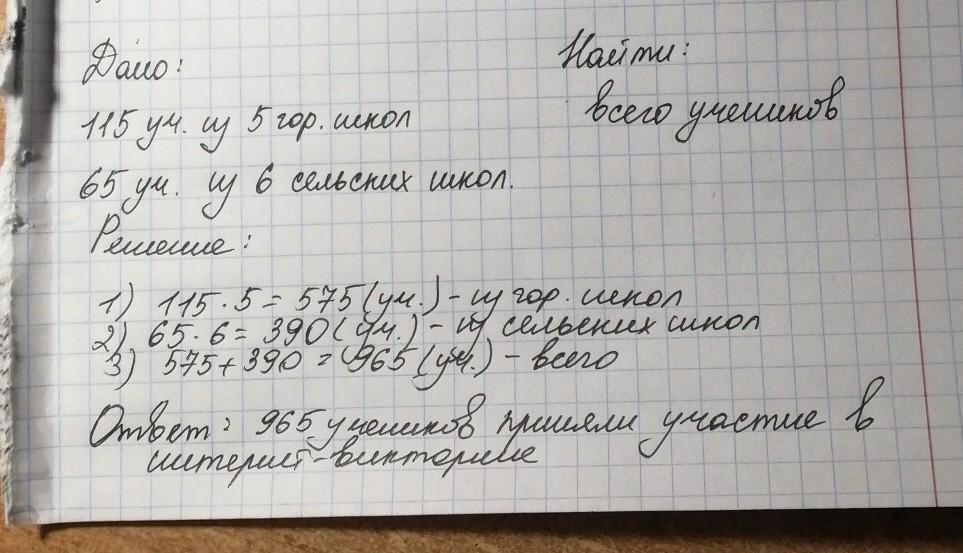 Дано:
Найти:
115 уч. из 5 гор. школ
всего учеников
65 уч. из 6 сельских школ.
Решение:
1) 115 · 5 = 575 (уч.) - из гор. школ
2) 65 · 6 = 390 (уч.) - из сельских школ
3) 575 + 390 = 965 (уч.) - всего
Ответ: 965 учеников приняли участие в
интернет-викторине